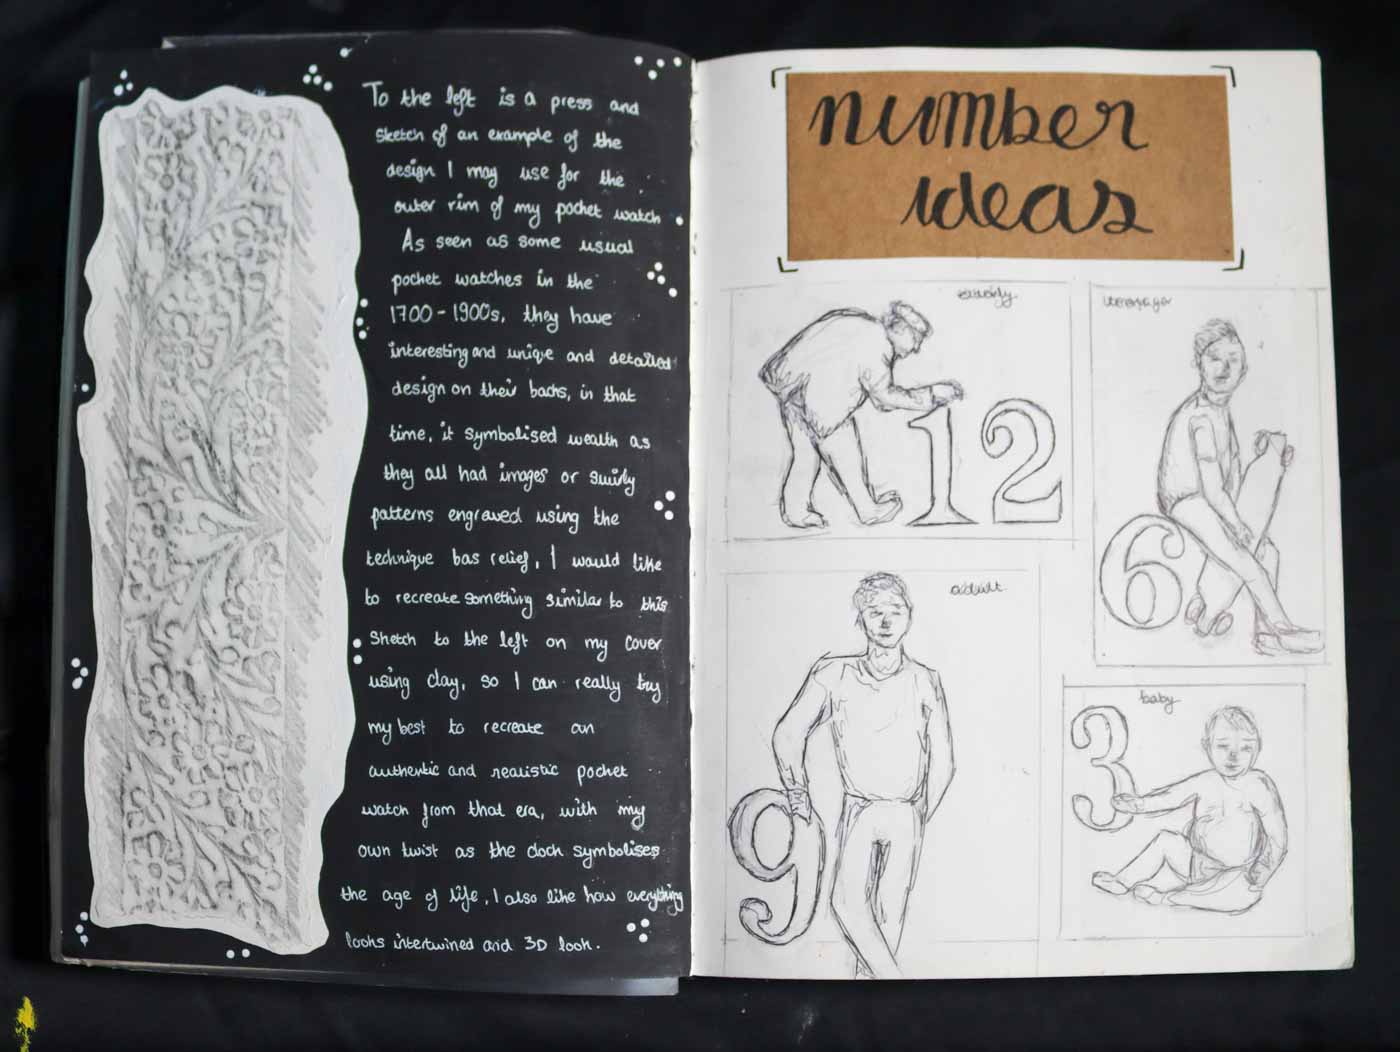 To the left is a press and
sketch of an example of the
design I may use for the
outer rim of my pocket watch
As seen as some usual
pocket watches in the
1700-1900s, they have
interesting and unique and detailed
design on their backs, in that
time, it symbolised wealth as
they all had images or swirly
patterns engraved using the
technique bas relief, I would like
to recreate something similar to this
Sketch to the left on my cover
using clay, so I can really try
my best to recreate an
authentic and realistic pocket
watch from that era, with my
own twist as the clock symbolises
the age of life, I also like how everything
looks intertwined and 3D look.
number
ideas
12
teenager
6
adult
9
baby
3